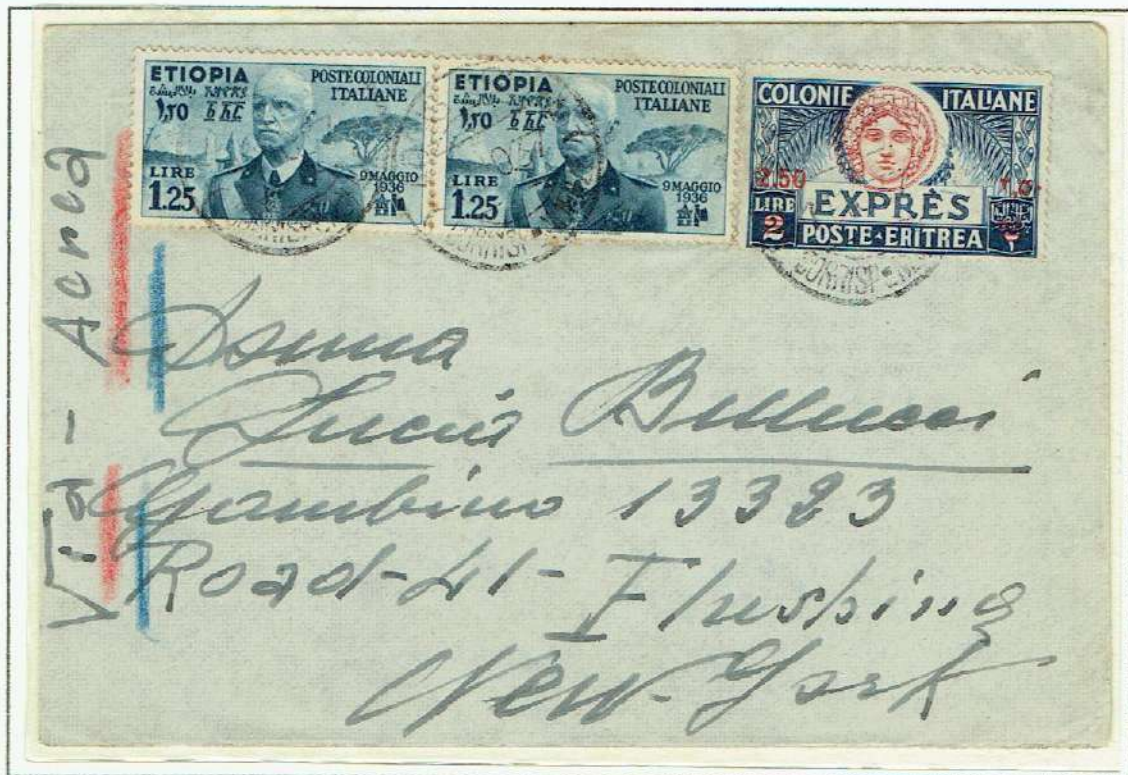 ETIOPIA
POSTE COLONIALI
ITALIANE
LIRE
1.25
9 MAGGIO
1936
ETIOPIA
POSTE COLONIALI
ITALIANE
LIRE
1.25
9 MAGGIO
1936
COLONIE ITALIANE
2.50
LIRE
2
EXPRÈS
POSTE·ERITREA
CORRISP
CORRISP
Via - Aerea
Lucia Bellucci
Gambino 13323
Road-41- Flushing
New-York